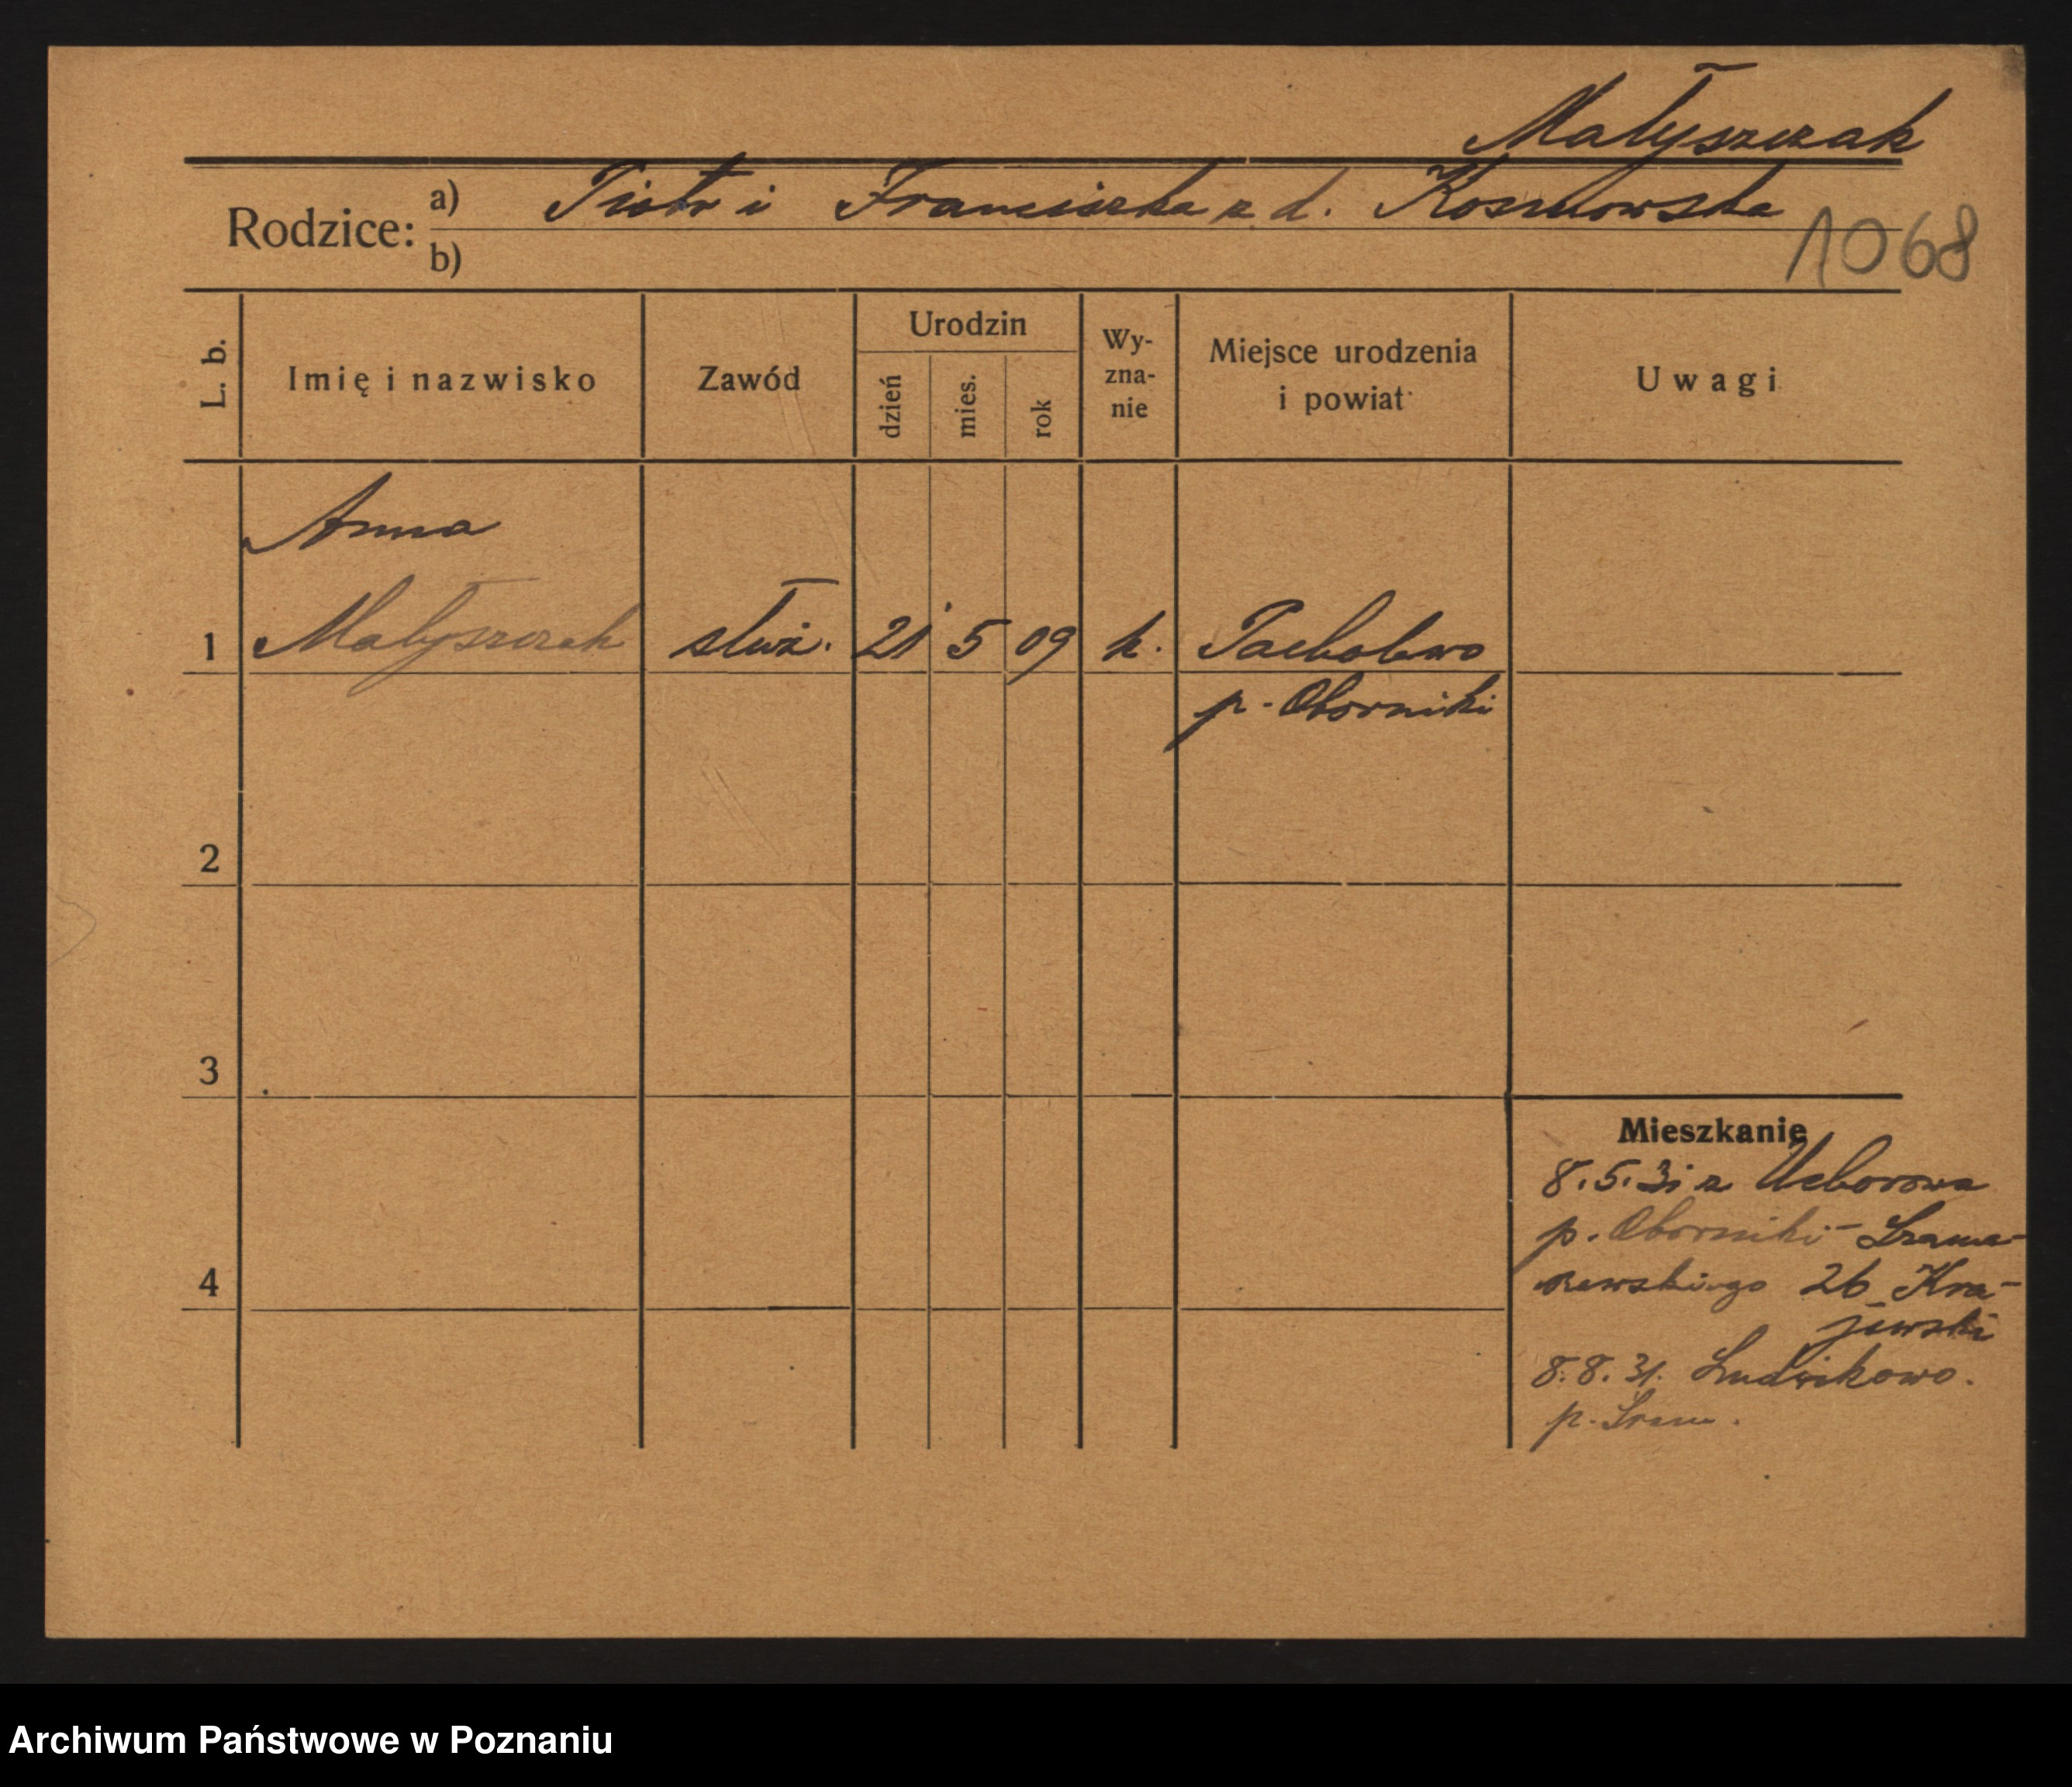 Małyszczak
Rodzice:
a) Piotr i Franciszka z d. Kosmowska
b)
1068
L. b.
Imię i nazwisko
Zawód
Urodzin
dzień
mies.
rok
Wy-
zna-
nie
Miejsce urodzenia
i powiat
Uwagi
Anna
1 Małyszczak służ. 21 5 09 k. Pacholewo
p. Oborniki
2
3
4
Mieszkanie
8.5.31 z Uchorowa
p. Oborniki - Szama-
rzewskiego 26 Kra-
jewski
8.8.31. Ludwikowo.
p. Śrem.
Archiwum Państwowe w Poznaniu